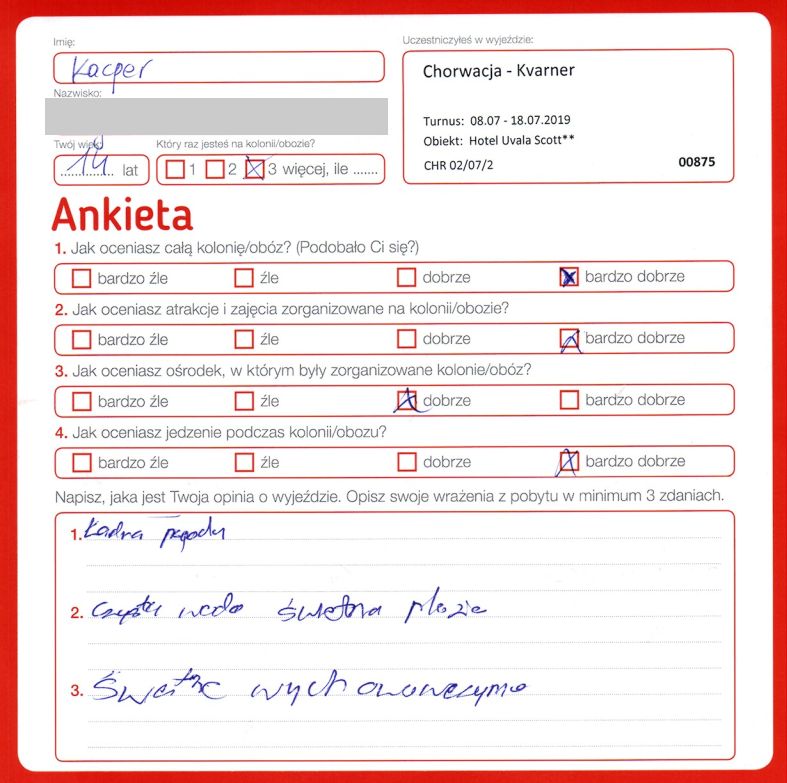 Imię:
Kacper
Nazwisko:
Uczestniczyłeś w wyjeździe:
Chorwacja - Kvarner
Turnus: 08.07 - 18.07.2019
Obiekt: Hotel Uvala Scott**
CHR 02/07/2 00875
Twój wiek
14 lat
Który raz jesteś na kolonii/obozie?
1 2 3 więcej, ile .......
Ankieta
1. Jak oceniasz całą kolonię/obóz? (Podobało Ci się?)
bardzo źle źle dobrze bardzo dobrze
2. Jak oceniasz atrakcje i zajęcia zorganizowane na kolonii/obozie?
bardzo źle źle dobrze bardzo dobrze
3. Jak oceniasz ośrodek, w którym były zorganizowane kolonie/obóz?
bardzo źle źle dobrze bardzo dobrze
4. Jak oceniasz jedzenie podczas kolonii/obozu?
bardzo źle źle dobrze bardzo dobrze
Napisz, jaka jest Twoja opinia o wyjeździe. Opisz swoje wrażenia z pobytu w minimum 3 zdaniach.
1. Ładna pogoda
2. Czysta woda świetna plaża
3.